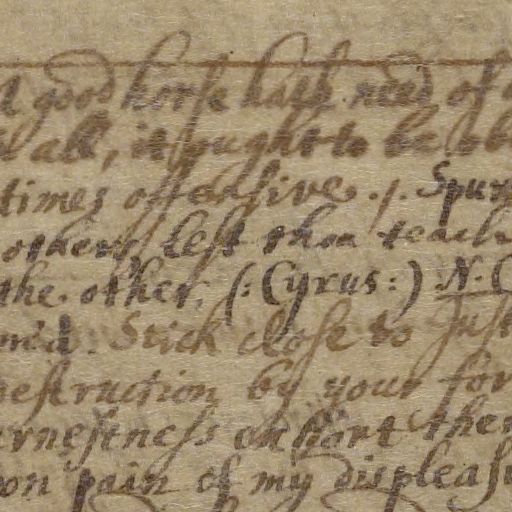 good horse hath need of
all, it ought to be
times offensive. /. Spur
others, lest thou teach
the other. (: Cyrus :) N. C
Stick close to Just
destruction by your for
ernestness exhort them
on pain of my displeasu